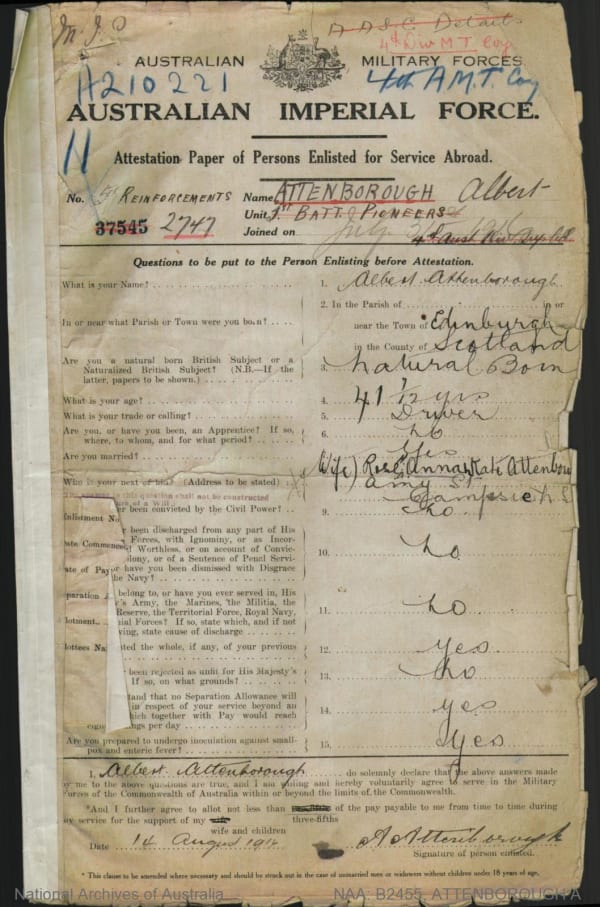 M.I.O
A.A.S.C. Details
4th Div M.T. Coy
AUSTRALIAN MILITARY FORCES
A210221
4th A.M.T. Coy
AUSTRALIAN IMPERIAL FORCE.
11
Attestation Paper of Persons Enlisted for Service Abroad.
No. REINFORCEMENTS Name ATTENBOROUGH Albert
Unit 1ST BATT PIONEERS
37545 2747
Joined on
Questions to be put to the Person Enlisting before Attestation.
What is your Name? 1. Albert Attenborough
2. In the Parish of in or
In or near what Parish or Town were you born? near the Town of Edinburgh
in the County of Scotland
Are you a natural born British Subject or a
Naturalized British Subject? (N.B.—If the
latter, papers to be shown.) 3. Natural Born
What is your age? 4. 41 1/2 yrs
What is your trade or calling? 5. Driver
Are you, or have you been, an Apprentice? If so,
where, to whom, and for what period? 6. No
Are you married? Yes
Who is your next of kin? (Address to be stated) Wife) Rose Annas Kate Attenborough
Amy St
Campsie N S
this question shall not be constructed
of a Will.
er been convicted by the Civil Power? 9. No
Enlistment No
er been discharged from any part of His
Forces, with Ignominy, or as Incor-
d Worthless, or on account of Convic-
lony, or of a Sentence of Penal Servi-
or have you been dismissed with Disgrace
he Navy? 10. No
ate Commenced
ate of Pay
paration A
belong to, or have you ever served in, His
's Army, the Marines, the Militia, the
Reserve, the Territorial Force, Royal Navy,
nial Forces? If so, state which, and if not
ving, state cause of discharge 11. No
lotment
lottees Na
ted the whole, if any, of your previous
12. Yes
been rejected as unfit for His Majesty's
If so, on what grounds? 13. No
tand that no Separation Allowance will
in respect of your service beyond an
hich together with Pay would reach
ings per day 14. Yes
Are you prepared to undergo inoculation against small-
pox and enteric fever? 15. Yes
I, Albert Attenborough do solemnly declare that the above answers made
by me to the above questions are true, and I am willing and hereby voluntarily agree to serve in the Military
Forces of the Commonwealth of Australia within or beyond the limits of the Commonwealth.
*And I further agree to allot not less than of the pay payable to me from time to time during
my service for the support of my wife and children three-fifths
Date 14 August 1916 A Attenborough
Signature of person enlisted.
* This clause to be amended where necessary and should be struck out in the case of unmarried men or widowers without children under 18 years of age.
National Archives of Australia NAA: B2455, ATTENBOROUGH A